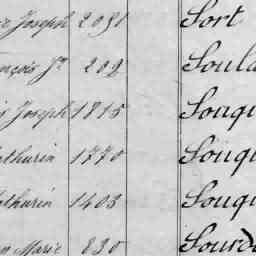 Joseph 2091 Sort
François Jh 202 Soula
Joseph 1815 Souqu
Mathurin 1770 Souqu
Mathurin 1403 Souqu
Marie 830 Sourd